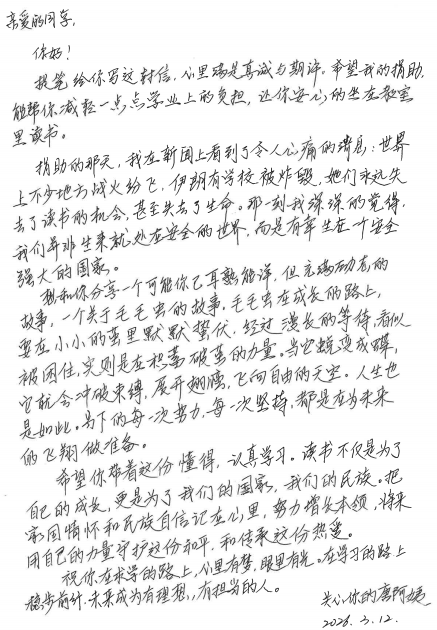 亲爱的同学，
你好！
提笔给你写这封信，心里满是真诚与期许。希望我的捐助，
能帮你减轻一点点学业上的负担，让你安心的坐在教室
里读书。
捐助的那天，我在新闻上看到了令人心痛的消息：世界
上不少地方战火纷飞，伊朗有学校被炸毁，她们永远失
去了读书的机会，甚至失去了生命。那一刻我深深的觉得，
我们并非生来就处在安全的世界，而是有幸生在一个安全
强大的国家。
想和你分享一个可能你已耳熟能详，但充满励志的
故事，一个关于毛毛虫的故事。毛毛虫在成长的路上，
要在小小的茧里默默蛰伏，经过漫长的等待，看似
被困住，实则是在积蓄破茧的力量。当它蜕变成蝶，
它就会冲破束缚，展开翅膀，飞向自由的天空。人生也
是如此。当下的每一次努力，每一次坚持，都是在为未来
的飞翔做准备。
希望你带着这份懂得，认真学习。读书不仅是为了
自己的成长，更是为了我们的国家，我们的民族。把
家国情怀和民族自信记在心里，努力增长本领，将来
用自己的力量守护这份和平，和传承这份热爱。
祝你在求学的路上，心里有梦，眼里有光。在学习的路上
稳步前行，未来成为有理想，有担当的人。
关心你的唐阿姨
2026.3.12.